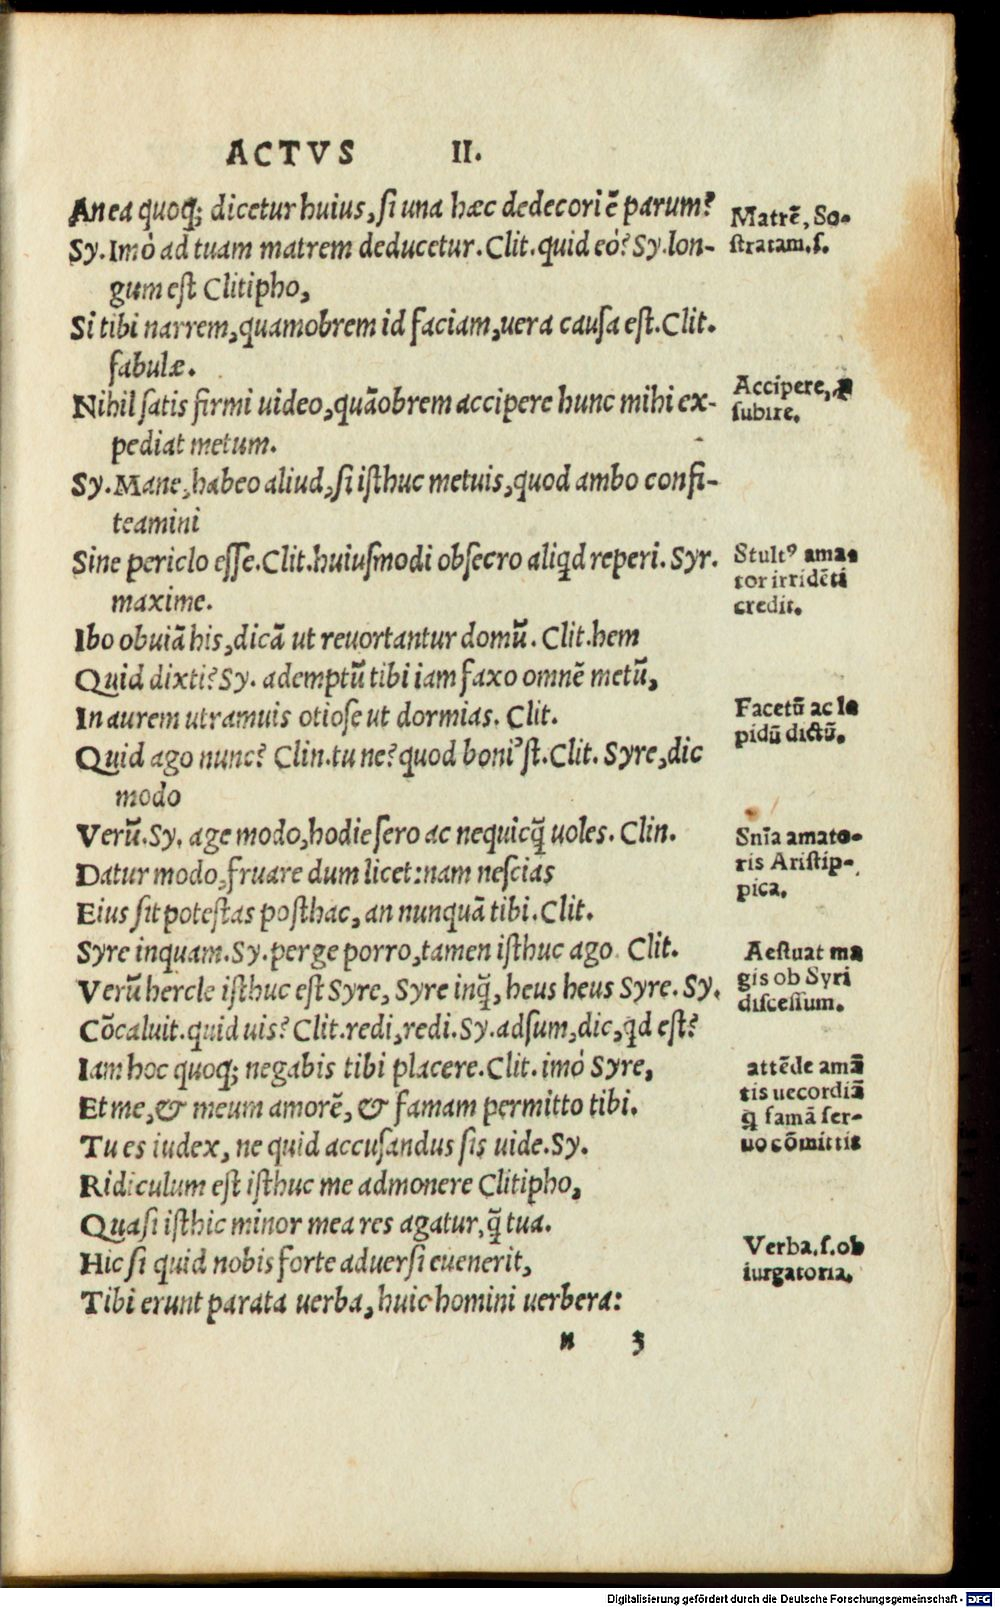 ACTVS II.
An ea quoq; dicetur huius, ſi una hæc dedecori ē parum?
Sy. Imò ad tuam matrem deducetur. Clit. quid eò? Sy. lon-
gum eſt Clitipho,
Si tibi narrem, quamobrem id faciam, uera cauſa eſt. Clit.
fabulæ.
Nihil ſatis firmi uideo, quāobrem accipere hunc mihi ex-
pediat metum.
Sy. Mane, habeo aliud, ſi iſthuc metuis, quod ambo confi-
teamini
Sine periclo eſſe. Clit. huiuſmodi obſecro aliq̇d reperi. Syr.
maxime.
Ibo obuiā his, dicā ut reuortantur domū. Clit. hem
Quid dixti? Sy. ademptū tibi iam faxo omnē metū,
In aurem utramuis otioſe ut dormias. Clit.
Quid ago nunc? Clin. tu ne? quod boni'ſt. Clit. Syre, dic
modo
Verū. Sy. age modo, hodie ſero ac nequicq̄ uoles. Clin.
Datur modo, fruare dum licet: nam neſcias
Eius ſit poteſtas poſthac, an nunquā tibi. Clit.
Syre inquam. Sy. perge porro, tamen iſthuc ago. Clit.
Verū hercle iſthuc eſt Syre, Syre inq̄, heus heus Syre. Sy.
Cōcaluit. quid uis? Clit. redi, redi. Sy. adſum, dic, q̇d eſt?
Iam hoc quoq; negabis tibi placere. Clit. imò Syre,
Et me, & meum amorē, & famam permitto tibi.
Tu es iudex, ne quid accuſandus ſis uide. Sy.
Ridiculum eſt iſthuc me admonere Clitipho,
Quaſi iſthic minor mea res agatur, q̄ tua.
Hic ſi quid nobis forte aduerſi euenerit,
Tibi erunt parata uerba, huic homini uerbera:
n 3
Matrē, So-
ſtratam. ſ.
Accipere,
ſubire.
Stult⁹ ama-
tor irridēti
credit.
Facetū ac le
pidū dictū.
Snīa amato-
ris Ariſtip-
pica.
Aeſtuat ma
gis ob Syri
diſceſſum.
attēde amā
tis uecordiā
q̄ famā ſer-
uo cōmittit
Verba. ſ. ob
iurgatoria.
Digitalisierung gefördert durch die Deutsche Forschungsgemeinschaft - DFG